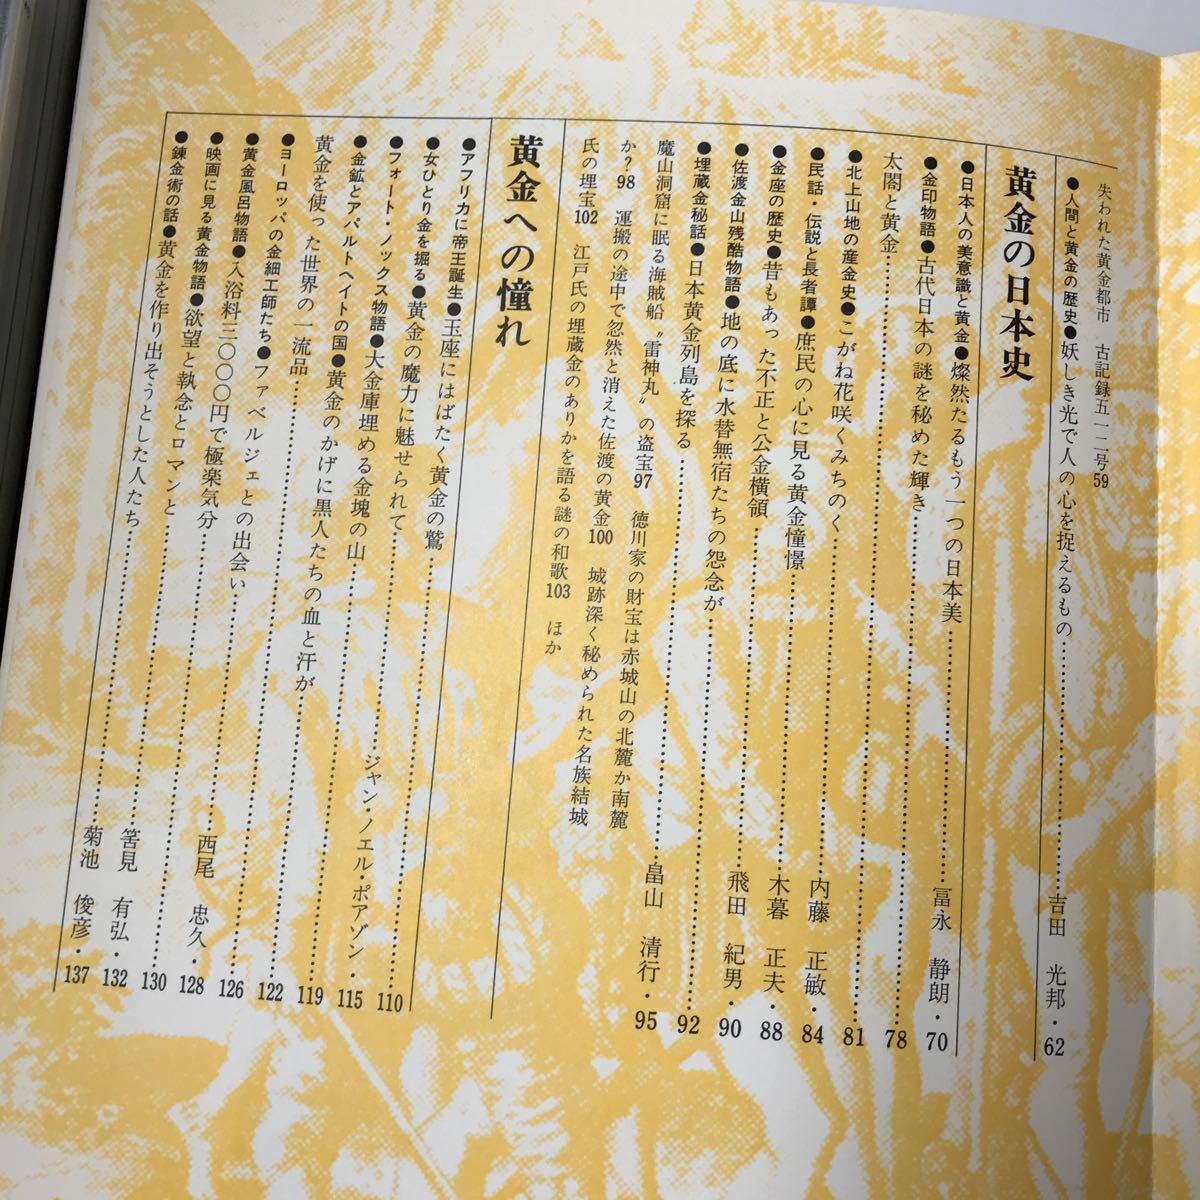 失われた黄金都市　古記録五一二号59
●人間と黄金の歴史●妖しき光で人の心を捉えるもの……吉田　光邦・62
黄金の日本史
●日本人の美意識と黄金●燦然たるもう一つの日本美……冨永　静朗・70
●金印物語●古代日本の謎を秘めた輝き……78
太閤と黄金……81
●北上山地の産金史●こがね花咲くみちのく……内藤　正敏・84
●民話・伝説と長者譚●庶民の心に見る黄金憧憬……木暮　正夫・88
●金座の歴史●昔もあった不正と公金横領……飛田　紀男・90
●佐渡金山残酷物語●地の底に水替無宿たちの怨念が……92
●埋蔵金秘話●日本黄金列島を探る……畠山　清行・95
魔山洞窟に眠る海賊船〝雷神丸〟の盗宝97　徳川家の財宝は赤城山の北麓か南麓
か？98　運搬の途中で忽然と消えた佐渡の黄金100　城跡深く秘められた名族結城
氏の埋宝102　江戸氏の埋蔵金のありかを語る謎の和歌103　ほか
黄金への憧れ
●アフリカに帝王誕生●玉座にはばたく黄金の鷲……110
●女ひとり金を掘る●黄金の魔力に魅せられて……ジャン・ノエル・ポアゾン・115
●フォート・ノックス物語●大金庫埋める金塊の山……119
●金鉱とアパルトヘイトの国●黄金のかげに黒人たちの血と汗が……122
黄金を使った世界の一流品……126
●ヨーロッパの金細工師たち●ファベルジェとの出会い……西尾　忠久・128
●黄金風呂物語●入浴料三〇〇〇円で極楽気分……130
●映画に見る黄金物語●欲望と執念とロマンと……筈見　有弘・132
●錬金術の話●黄金を作り出そうとした人たち……菊池　俊彦・137